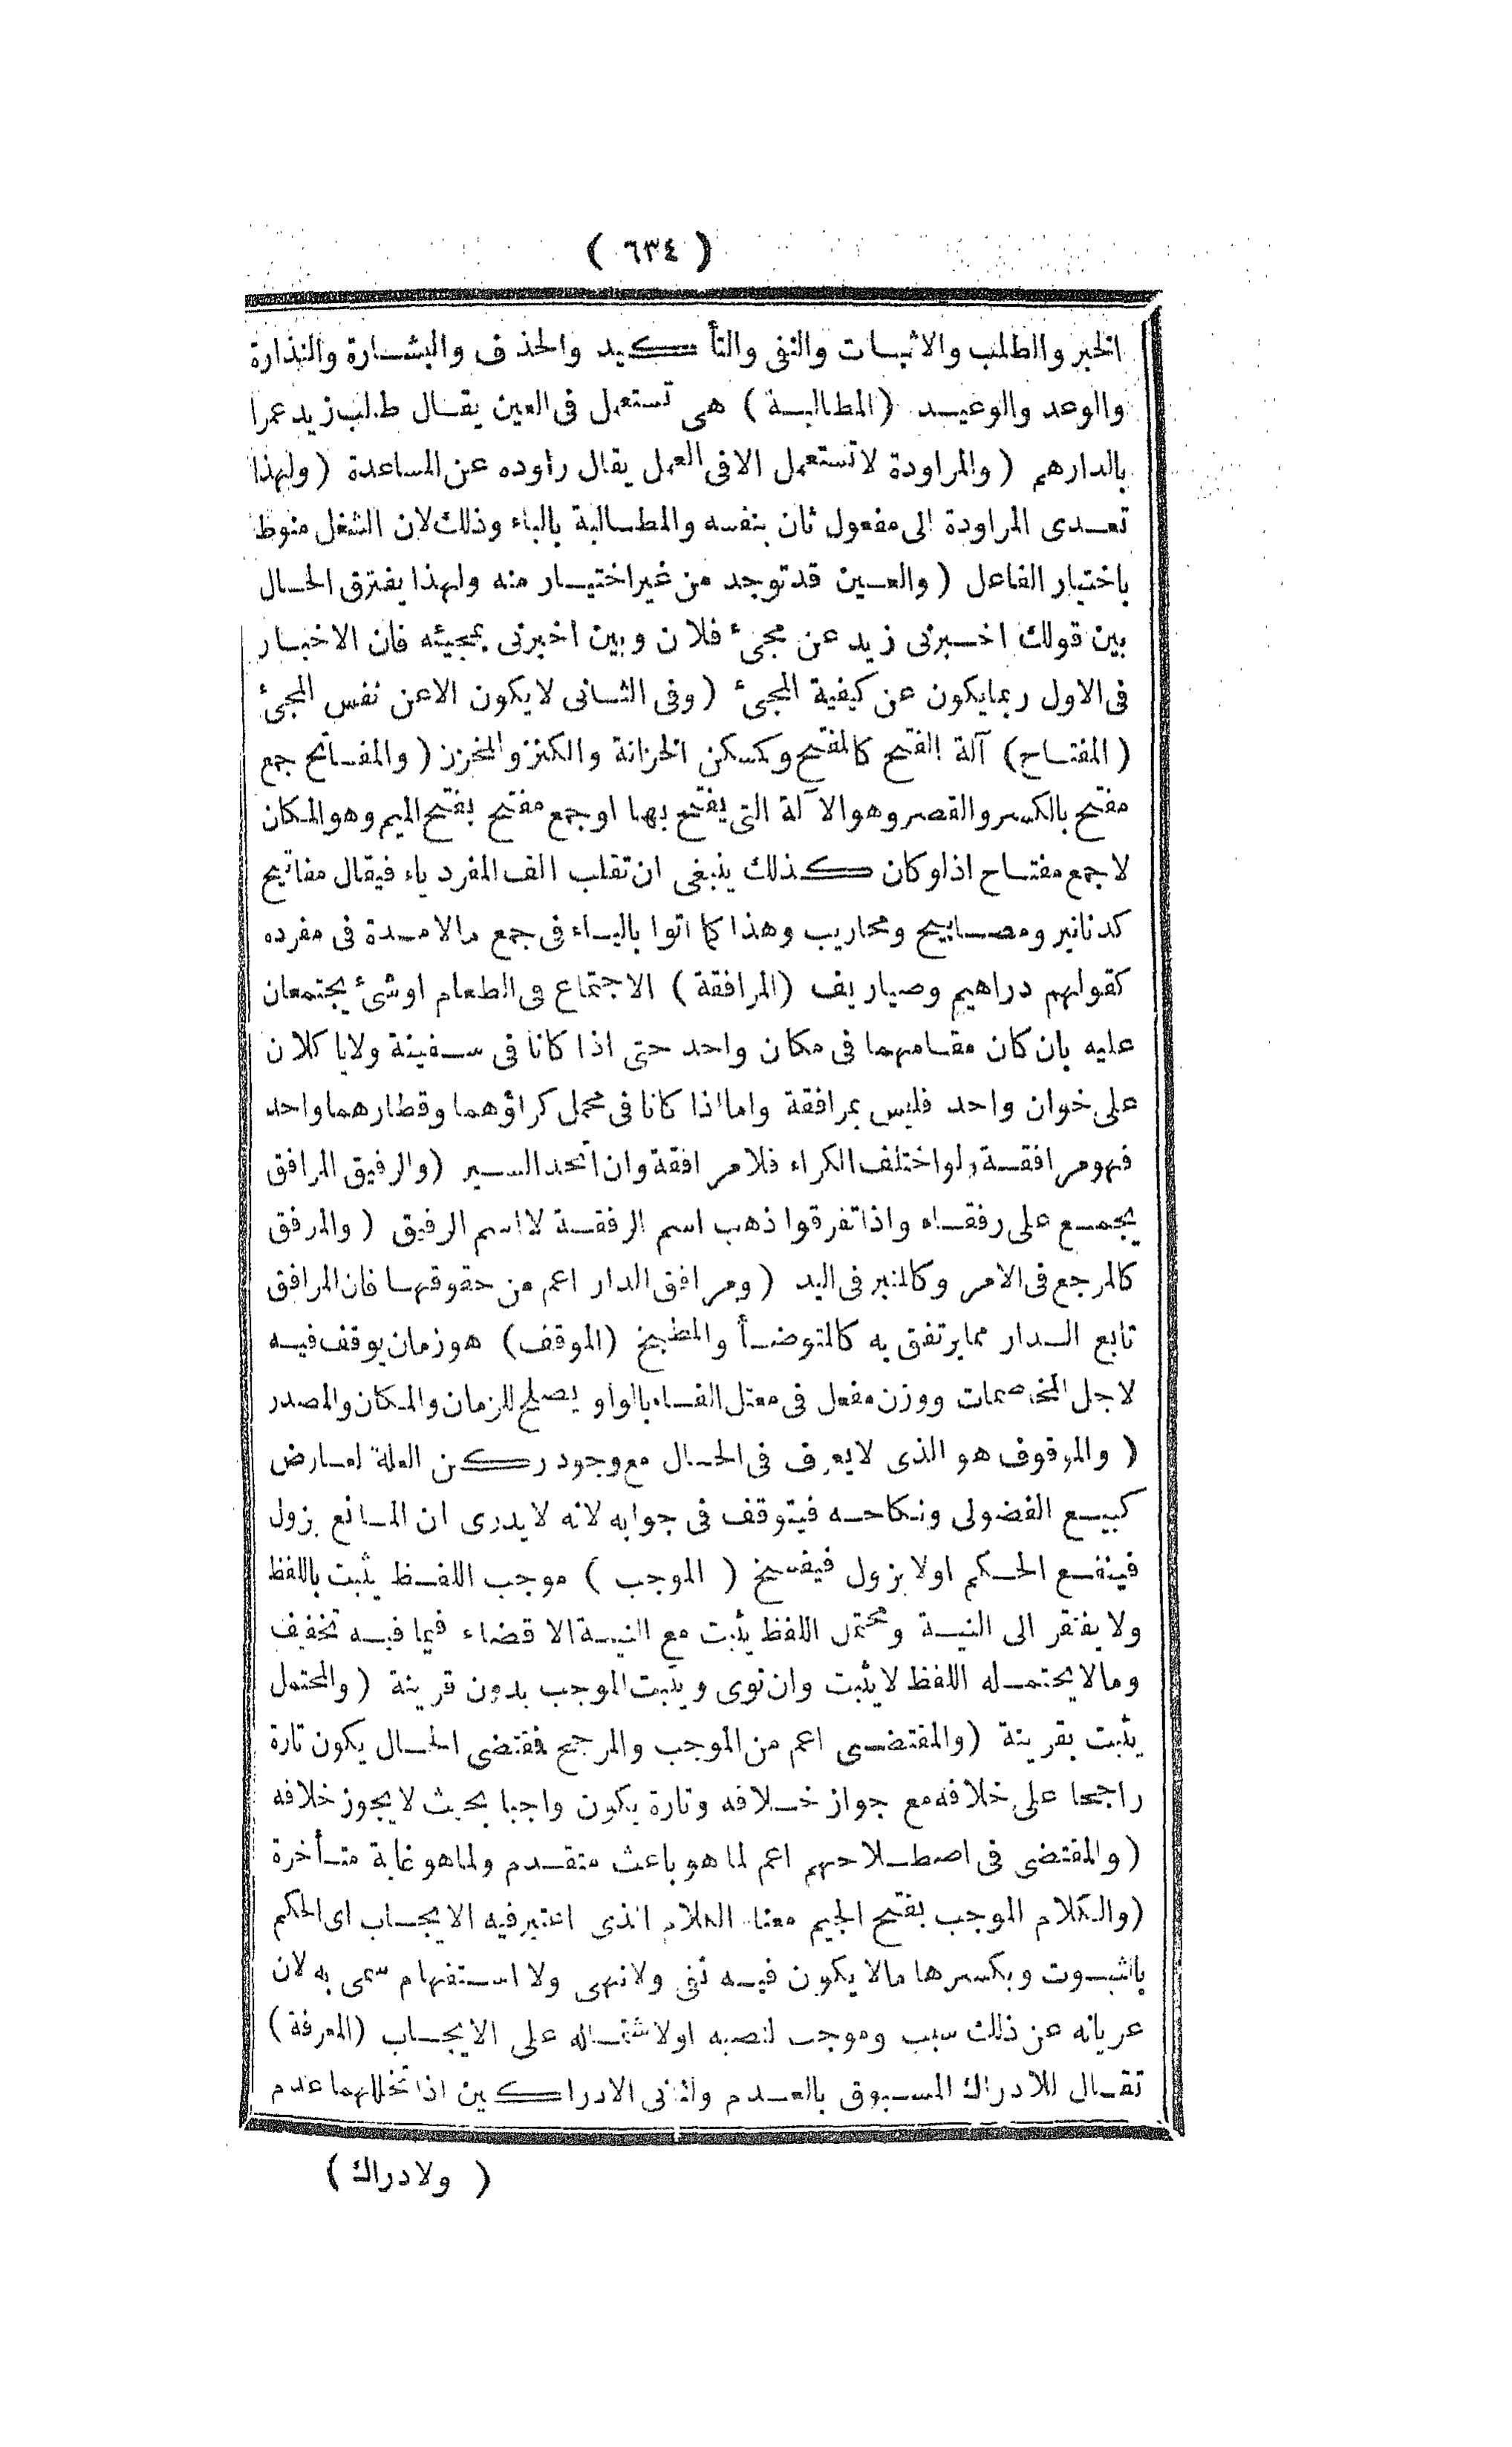 ( ٦٣٤ )
الخبر والطلب والاثبات والنفى والتأكيد والحذف والبشارة والنذارة
والوعد والوعيد (المطالبة) هى تستعمل فى العين يقال طلب زيد عمرا
بالدارهم (والمراودة لاتستعمل الافى العمل يقال راوده عن المساعدة (ولهذا
تعدى المراودة الى مفعول ثان بنفسه والمطالبة بالباء وذلك لان الشغل منوط
باختيار الفاعل (والعين قدتوجد من غيراختيار منه ولهذا يفترق الحال
بين قولك اخبرنى زيد عن مجىء فلان وبين اخبرنى بمجيئه فان الاخبار
فى الاول ربمايكون عن كيفية المجىء (وفى الثانى لايكون الاعن نفس المجىء
(المفتاح) آلة الفتح كالمفتح وكمسكن الخزانة والكنز والمخزن (والمفاتح جمع
مفتح بالكسر والقصر وهو الآلة التى يفتح بها اوجمع مفتح بفتح الميم وهو المكان
لاجمع مفتاح اذلوكان كذلك ينبغى ان تقلب الف المفرد ياء فيقال مفاتيح
كدنانير ومصابيح ومحاريب وهذا كما اتوا بالياء فى جمع مالامدة فى مفرده
كقولهم دراهيم وصياريف (المرافقة) الاجتماع فى الطعام اوشىء يجتمعان
عليه بان كان مقامهما فى مكان واحد حتى اذا كانا فى سفينة ولايأكلان
على خوان واحد فليس بمرافقة واما اذا كانا فى محمل كراؤهما وقطارهما واحد
فهو مرافقة ولواختلف الكراء فلامرافقة وان اتحد السير (والرفيق المرافق
يجمع على رفقاء واذا تفرقوا ذهب اسم الرفقة لااسم الرفيق (والمرفق
كالمرجع فى الامر وكالمنبر فى اليد (ومرافق الدار اعم من حقوقها فان المرافق
تابع الدار مما يرتفق به كالمتوضأ والمطبخ (الموقف) هو زمان يوقف فيه
لاجل المخاصمات ووزن مفعل فى معتل الفاء بالواو يصلح للزمان والمكان والمصدر
(والموقوف هو الذى لايعرف فى الحال مع وجود ركن العلة لعارض
كبيع الفضولى ونكاحه فيتوقف فى جوابه لانه لايدرى ان المانع يزول
فينفع الحكم اولايزول فيفسخ (الموجب) موجب اللفظ يثبت باللفظ
ولايفتقر الى النية ومحتمل اللفظ يثبت مع النية الاقضاء فيما فيه تخفيف
ومالايحتمله اللفظ لايثبت وان نوى ويثبت الموجب بدون قرينة (والمحتمل
يثبت بقرينة (والمقتضى اعم من الموجب والمرجح فمقتضى الحال يكون تارة
راجحا على خلافه مع جواز خلافه وتارة يكون واجبا بحيث لايجوز خلافه
(والمقتضى فى اصطلاحهم اعم لما هو باعث متقدم ولما هو غاية متأخرة
(والكلام الموجب بفتح الجيم معناه الكلام الذى اعتبر فيه الايجاب اى الحكم
بالثبوت وبكسرها مالايكون فيه نفى ولانهى ولا استفهام سمى به لان
عريانه عن ذلك سبب وموجب لنصبه اولاشتماله على الايجاب (المعرفة)
تقال للادراك المسبوق بالعدم ولثانى الادراكين اذا تخللهما عدم
( ولادراك )